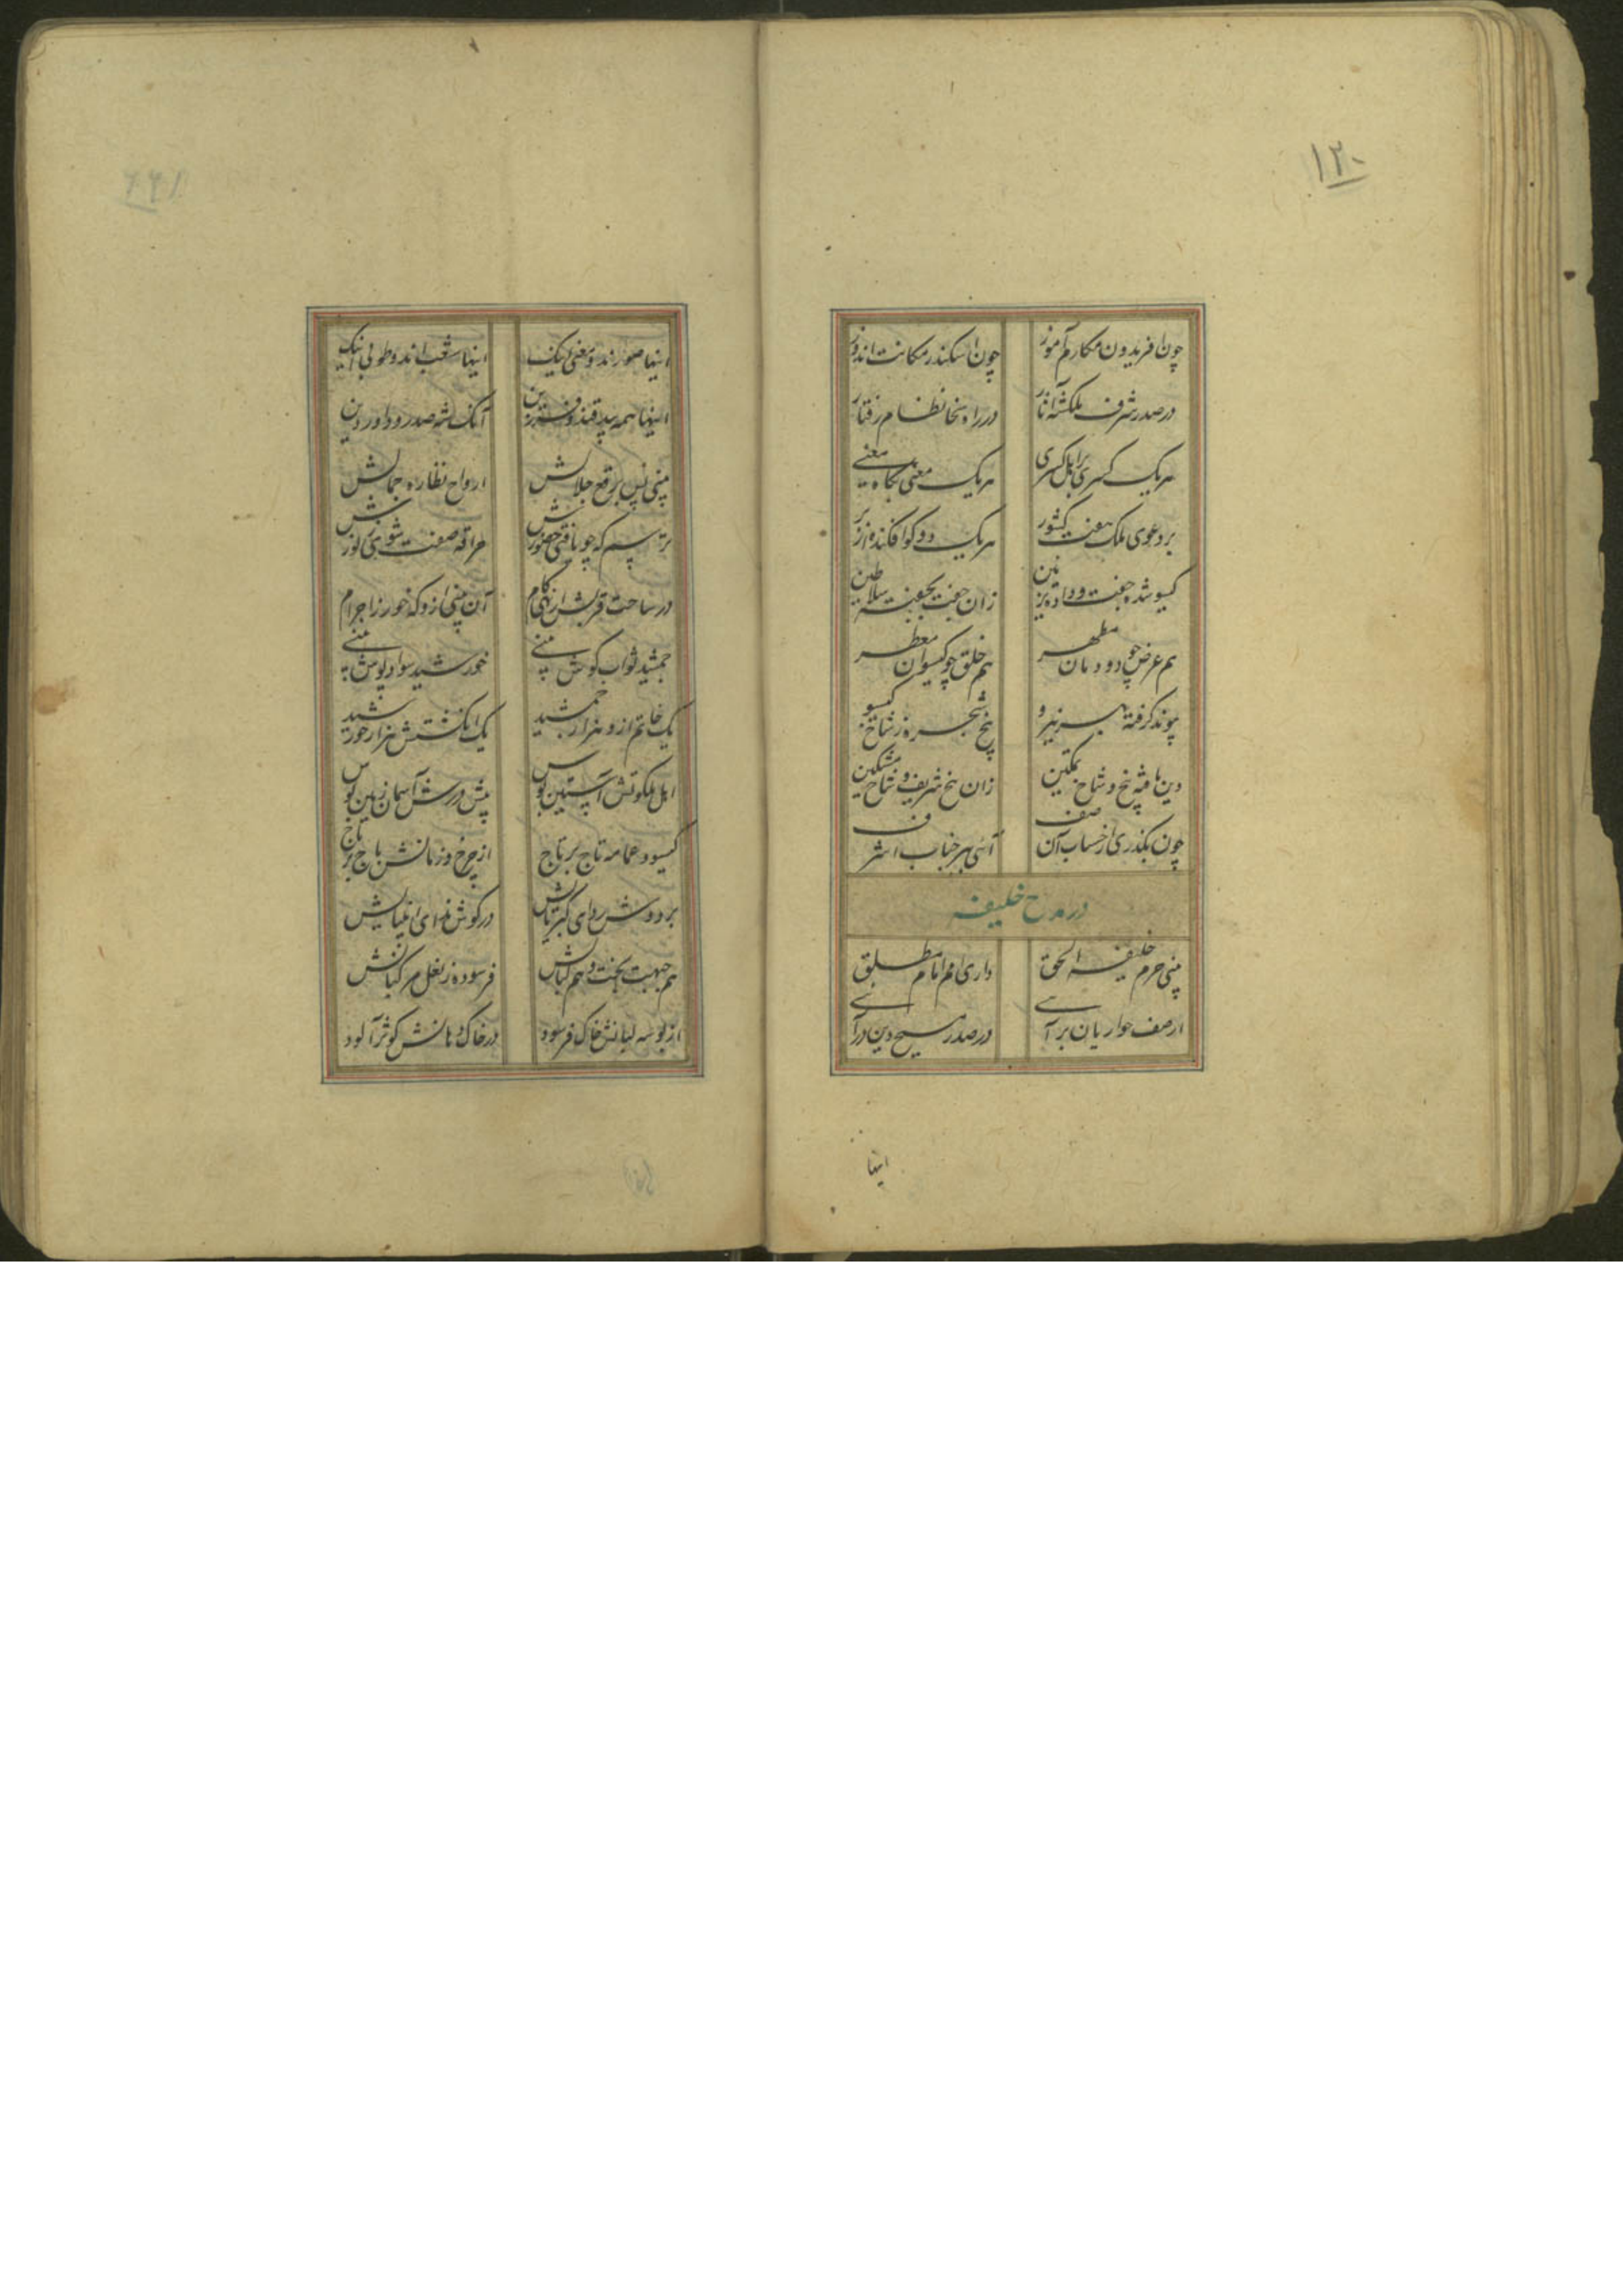 ۱۲۰
چون افریدون مکارم آموز چون اسکندر مکانت اندوز
در صدر شرف ملکشه آثار در راه سخا نظام رفتار
هر یک کسری برابل کسری هر یک معنی بجاه معنی
بر دعوی ملک هفت کشور هر یک دو کوا فکنده از بر
کیسو شده جفت و داده تزیین زان جفت بجفته سلاطین
هم عرض چو دودمان مطهر هم خلق چو کیسوان معطر
پیوند کرفته بهر نیرو بیخ شجره ز شاخ کیسو
دین یافته بیخ و شاخ تمکین زان بیخ شریف و شاخ مشکین
چون بگذری از حساب آن صف آئی بر جناب اشرف
در مدح خلیفه
بینی حرم خلیفه الحق دارای امم امام مطلق
از صف حواریان برآی در صدر مسیح دین درآی
اینها
اینها صورند و معنی اینک اینها شعب اند و طوبی اینک
اینها همه بیدقند و فرزین آنک شه صدر و داور دین
بینی پس برقع جلالش ارواح نظاره جمالش
ترسم که چو یافتی حضورش حراقه صفت شوی ز نورش
در ساحت قربش از نهی کام آن بینی ازو که خور ز اجرام
جمشید ثواب کوش بینی خورشید سواد پوش بینی
یک خاتم ازو هزار جمشید یک انگشتش هزار خورشید
اهل ملکوتش آستین بوس پیش درش آسمان زمین بوس
کیسو و عمامه تاج بر تاج از چرخ و زمانش باج بر باج
بر دوش ردای کبریایش در کوش ندای انبیایش
هم جبهت بخت و هم کیانش فرسوده ز نعل مرکبانش
از بوسه لبانش خاک فرسود در خاک دهانش کوثر آلود